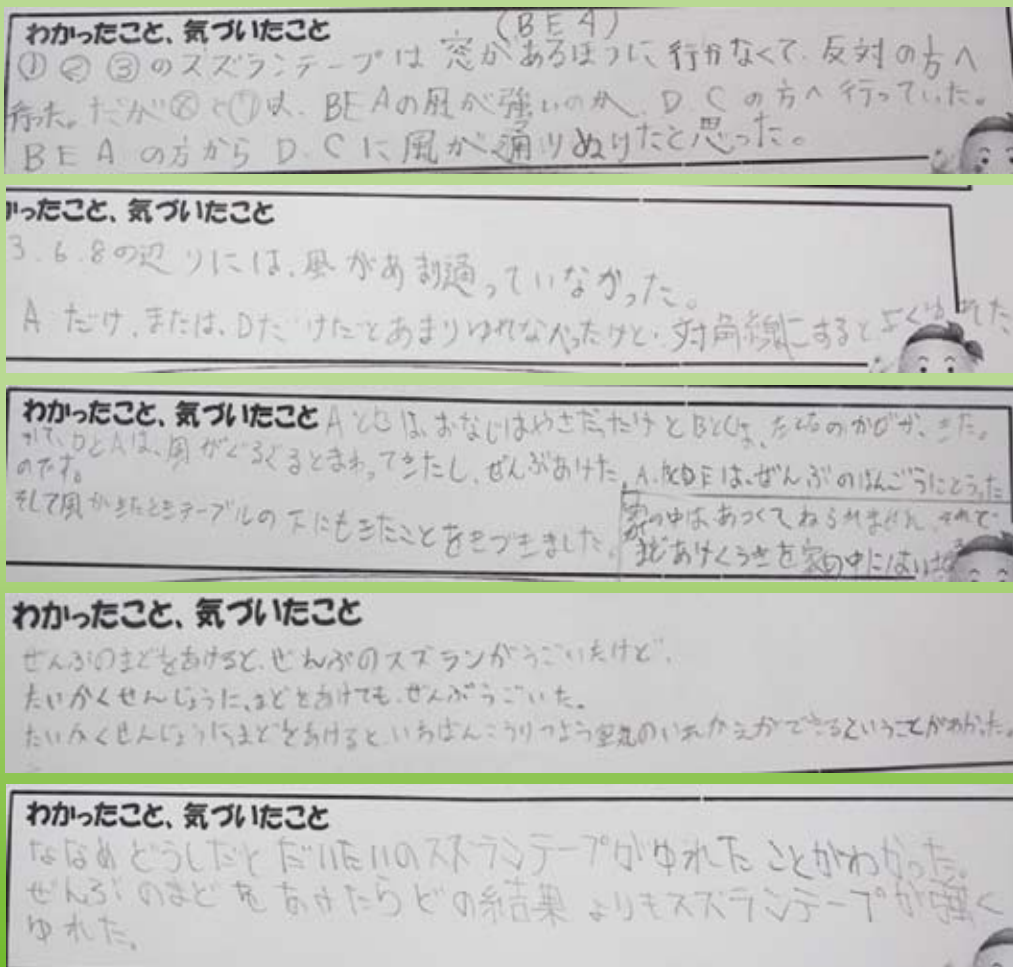 わかったこと、気づいたこと
(BEA)
①②③のスズランテープは窓があるほうに行かなくて、反対の方へ
行った。だが⑧と⑦は、BEAの風が強いのか、D.Cの方へ行っていた。
BEAの方からD.Cに風が通りぬけたと思った。
かったこと、気づいたこと
3.6.8の辺りには、風があまり通っていなかった。
Aだけ、または、Dだけだとあまりゆれなかったけど、対角線にするとよくゆれた
わかったこと、気づいたこと
は、おなじはやさだったけどBとCは、
DとAは、風がぐるぐるとまわってきたし、ぜんぶあけた
は、ぜんぶのばんごうにとうった
のです。
そして風がきたときテーブルの下にもきたことをきづきました。
家の中はあつくてねられません。それで
まどあけくうきを家の中に
わかったこと、気づいたこと
ぜんぶのまどをあけると、ぜんぶのスズランがうごいたけど、
たいかくせんじょうに、まどをあけても、ぜんぶうごいた。
たいかくせんじょうに、まどをあけると、いちばんこうりつよう空気のいれかえができるということがわかった。
わかったこと、気づいたこと
ななめどうしだとだいたいのスズランテープがゆれたことがわかった。
ぜんぶのまどをあけたらどの結果よりもスズランテープが強く
ゆれた。